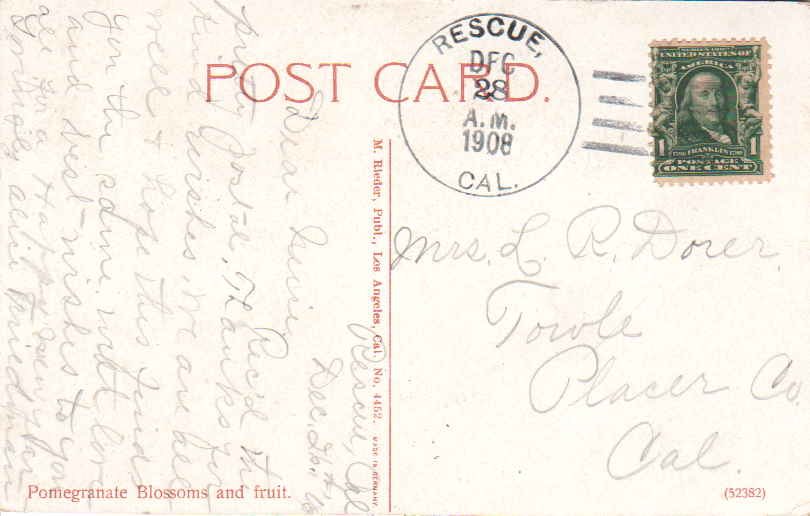 POST CARD.
RESCUE,
DEC
28
A.M.
1908
CAL.
SERIES 1902
UNITED STATES OF
AMERICA
1 FRANKLIN 1
POSTAGE
ONE CENT
Mrs. L. R. Dorer.
Towle
Placer Co.
Cal.
M. Rieder, Publ., Los Angeles, Cal. No. 4452. MADE IN GERMANY.
Rescue, Cal
Dec.
Dear
Rec'd the
pretty postal, Thanks for
kind wishes, we are all
well & hope this finds
you the same. with love
and best wishes to you
all for a Happy New year
Pomegranate Blossoms and fruit.
(52382)